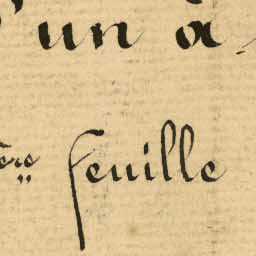 l'un à
ère feuille